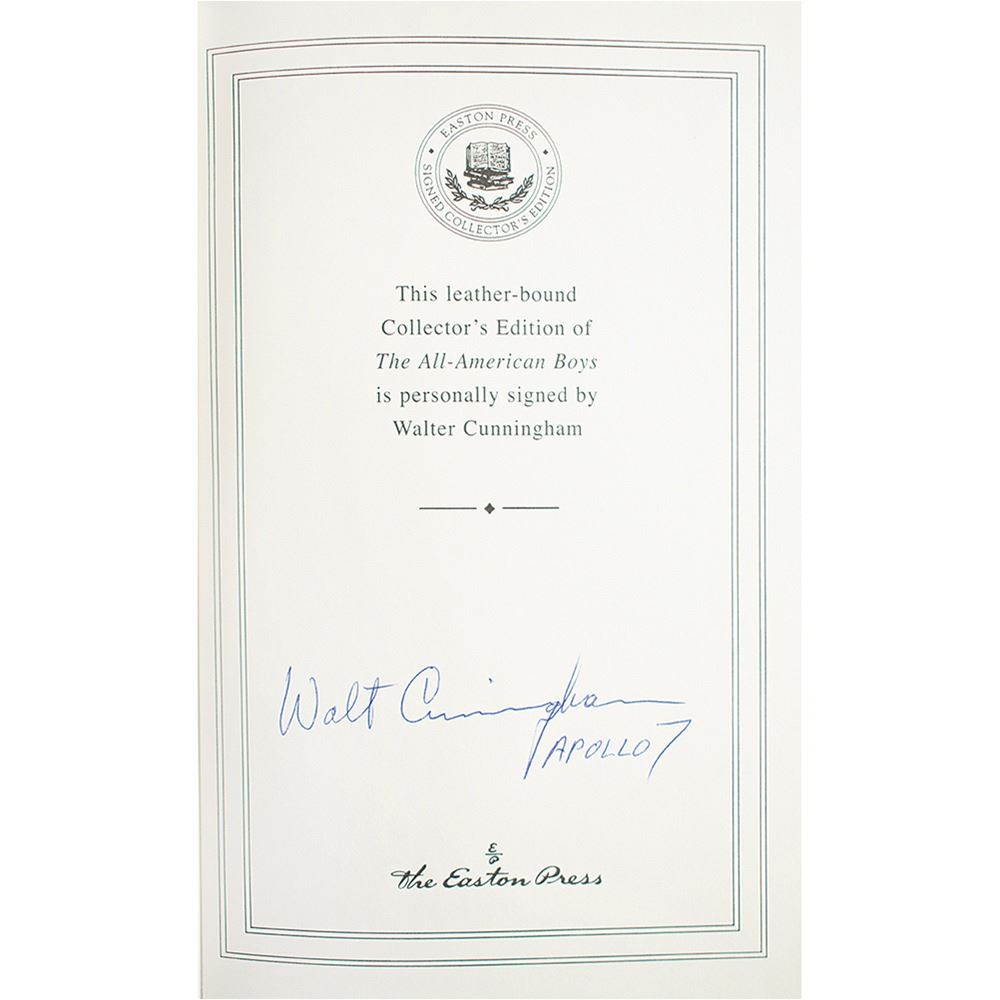 EASTON PRESS
SIGNED COLLECTOR'S EDITION
This leather-bound
Collector's Edition of
The All-American Boys
is personally signed by
Walter Cunningham
Walt Cunningham
APOLLO 7
E
P
The Easton Press